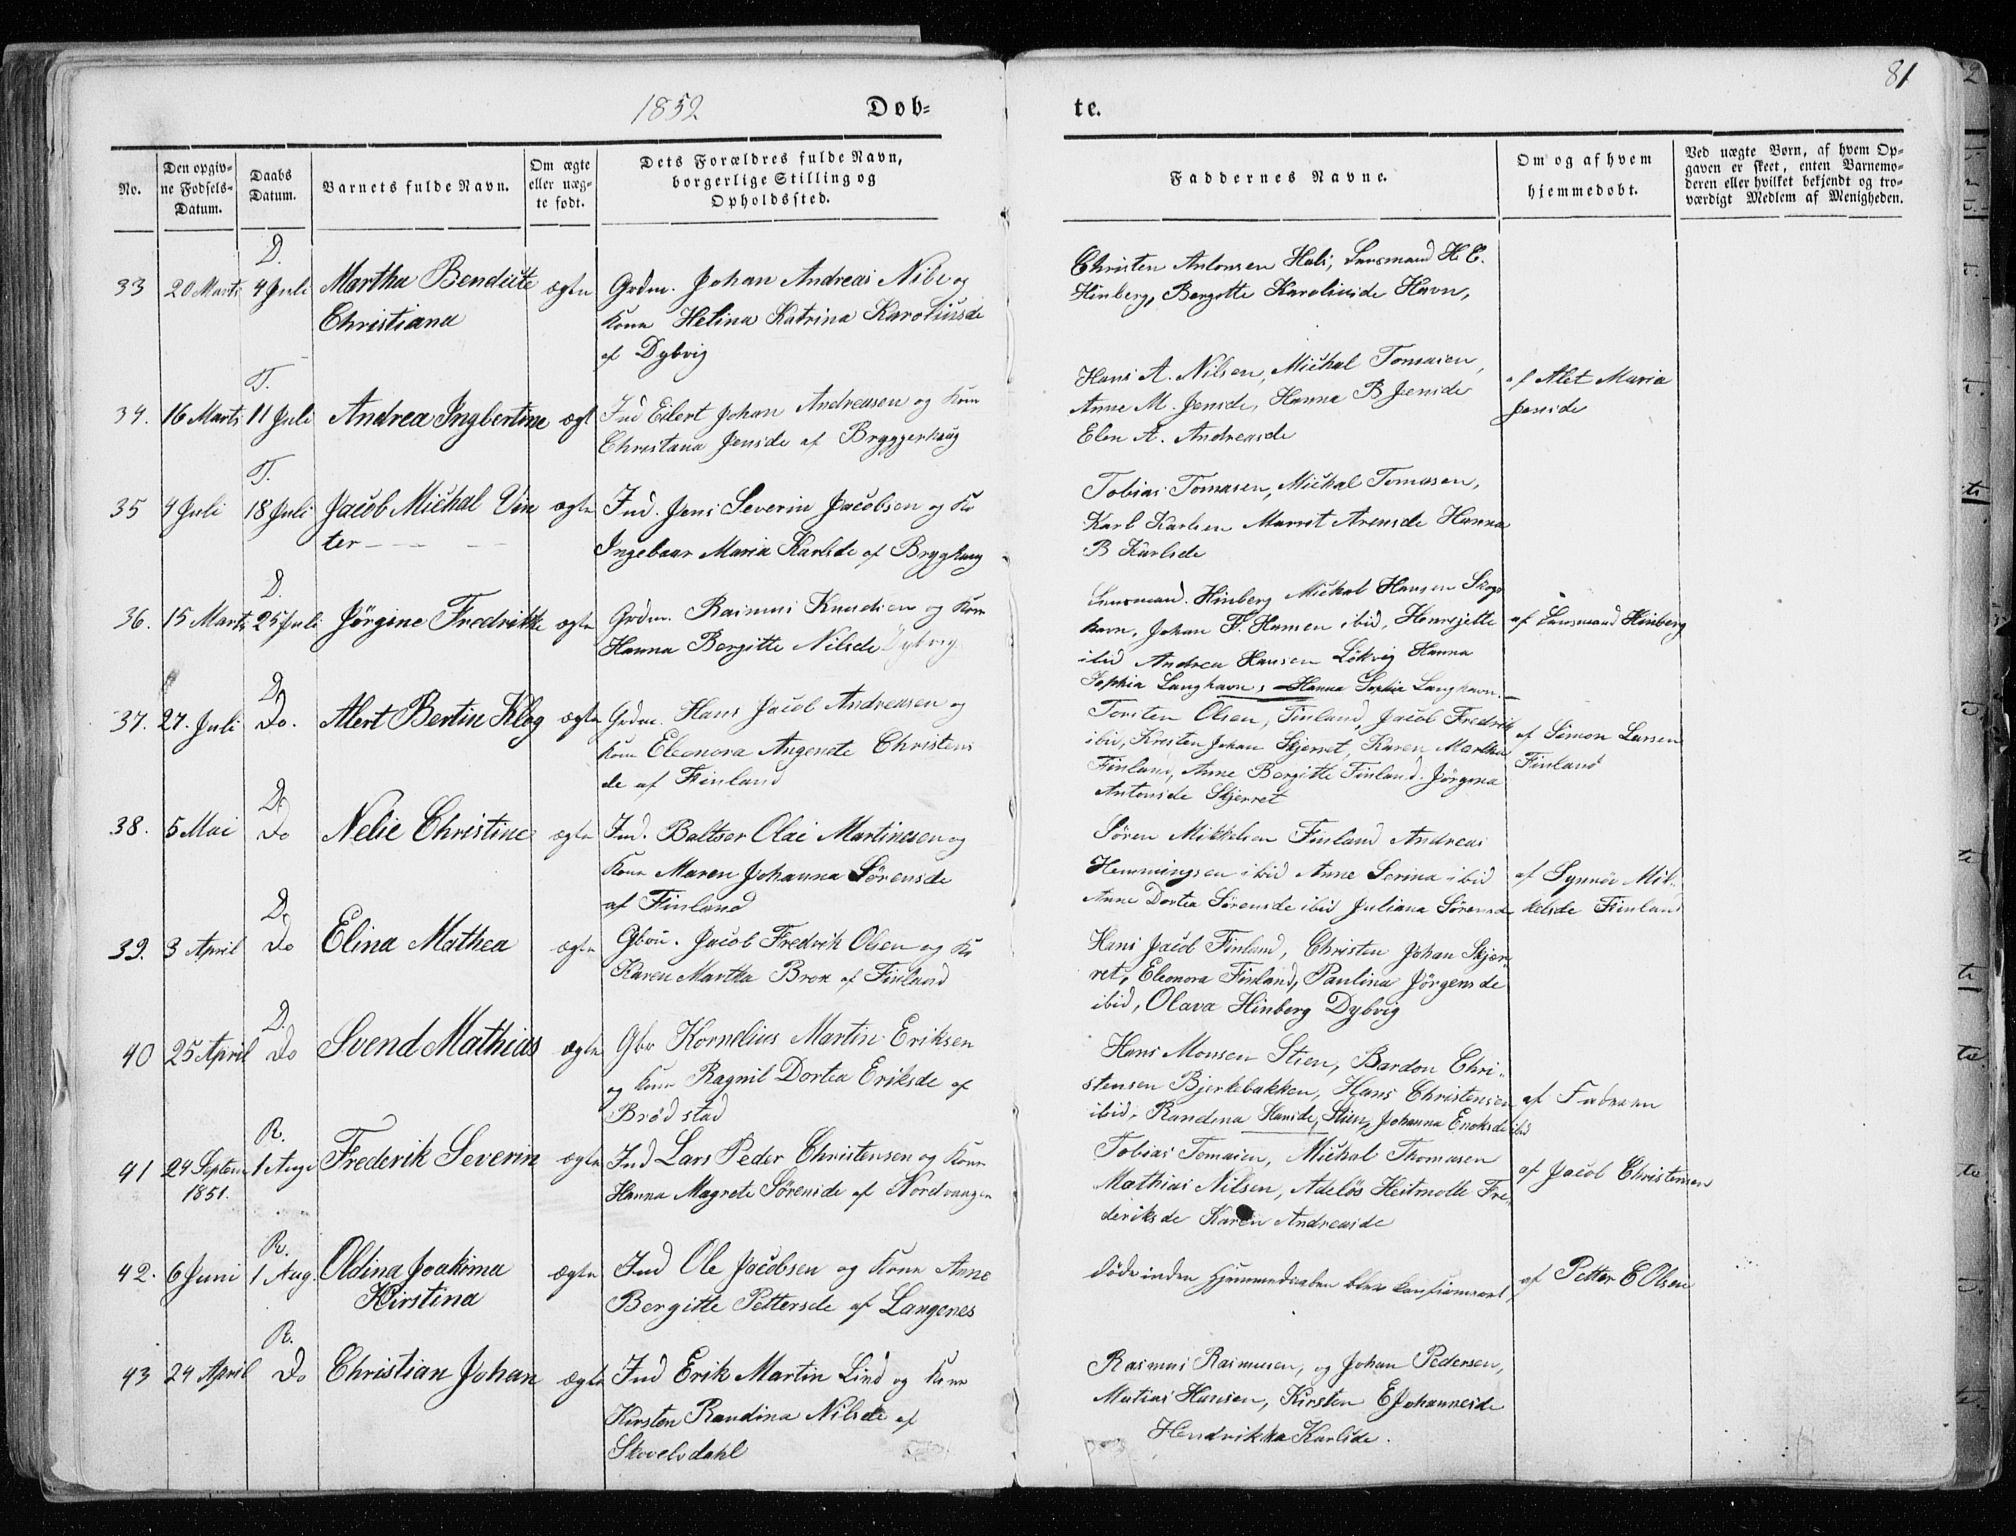 81
1852 Døb- te.
No. Den opgiv- ne Fødsels- Datum. Daabs Datum. Barnets fulde Navn. Om ægte eller uæg- te født. Dets Forældres fulde Navn, borgerlige Stilling og Opholdssted. Faddernes Navne. Om og af hvem hjemmedøbt. Ved uægte Børn, af hvem Op- gaven er skeet, enten Barnemo- deren eller hvilket bekjendt og tro- værdigt Medlem af Menigheden.
D.
33 20 Marts 4 Juli Martha Bendicte ægte Grdm. Johan Andreas Nibe og
Christiana Kone Helina Katrina Karoliusde
af Dybvig
Christen Antonsen Hals, Lensmand H. E.
Hinberg, Bergette Karoliusde Havn,
T.
34. 16 Marts 11 Juli Andrea Ingbertine ægt Ind Eilert Johan Andreasen og Kone
Christana Jensde af Bryggerhaug
Hans A. Nilsen, Michal Tomasen,
Anne M. Jensde, Hanna B Jensde
Elen A. Andreasde
af Alet Maria
Jensde
T.
35 4 Juli 18 Juli Jacob Michal Vin ægte Ind. Jens Severin Jacobsen og Ko
ter Ingebaar Maria Karlsde af Bryghaug
Tobias Tomasen, Michal Tomasen,
Karl Karlsen Marret Arensde Hanna
B Karlsde
D.
36. 15 Marts 25 Juli Jørgine Fredrikke ægte Grdm. Rasmus Knudsen og Kone
Hanna Bergitte Nilsde Dybvig
Lensmand. Hinberg Michal Hansen Skogs
havn, Johan F. Hansen ibid, Henrsjette
ibid Andrea Hansen Løkvig Hanna
Sophia Langhavn, Hanna Sophia Langhavn.
af Lensmand Hinberg
D.
37. 27. Juli Do. Alert Bertin Klog ægte Grdm. Hans Jacob Andreasen og
Kone Eleonora Angenete Christens
de af Finland
Torsten Olsen, Finland, Jacob Fredrik
ibid, Kresten Johan Skjerret, Karen Martha
Finland, Anne Bergitte Finland. Jørgina
Antonsde Skjerret
af Simon Larsen
Finland
D.
38. 5 Mai Do Nelie Christine ægte Ind. Baltser Olai Martinesen og
Kone Maren Johanna Sørensde
af Finland
Søren Mikkelsen Finland Andreas
Hemmingsen ibid Anne Serina ibid
Anne Dortea Sørensde ibid Juliana Sørensde
af Synnøv Mik-
kelsde Finland
D.
39. 3 April Do Elina Mathea ægte Gbru. Jacob Fredrik Olsen og Ko
Karen Martha Brox af Finland
Hans Jacob Finland, Christen Johan Skjer-
ret, Eleonora Finland, Paulina Jørgensde
ibid, Olava Hinberg Dybvig
D.
40 25 April Do Svend Mathias ægte Gbr Kornelius Martin Eriksen
og Kone Ragnil Dortea Eriksde af
Brødstad
Hans Monsen Stien, Bardon Chri-
stensen Bjerkebakken, Hans Christensen
ibid, Randina Hansde, Stien, Johanna Enoksde ibid
af Faderen
R.
41 24 Septem 1 Aug Frederik Severin ægte Ind Lars Peder Christensen og Kone
1851. Hanna Magrete Sørensde af Nordvangen
Tobias Tomasen, Michal Thomasen
Mathias Nilsen, Adeløs Heitmolle Fre-
deriksde Karen Andreasde
af Jacob Christensen
R.
42. 6 Juni 1 Aug. Oldina Joakima ægte Ind Ole Jacobsen og Kone Anne
Kirstina Bergitte Pettersde af Langenes
døde inden Hjemmedaaben blev Confirmeret,
af Petter E Olsen
R.
43 24 April Do Christian Johan ægte Ind Erik Martin Lind og Kone
Kirsten Randina Nilsde af
Skovelvdahl
Rasmus Rasmusen, og Johan Pedersen,
Matias Hansen, Kirsten E Johannesde
Hendrikka Karlsde.